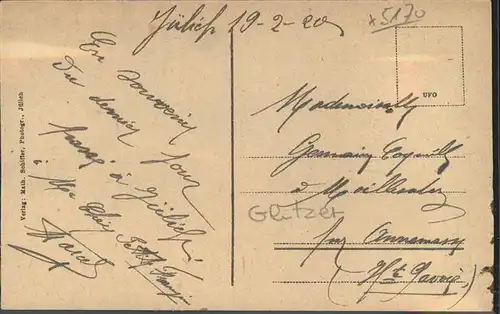 Jülich 19-2-20
x5170
En souvenir
Du dernier jour
passé à Jülich
à Ma Chère Petite
Marcel
UFO
Mademoiselle
Germaine
à
Glitzer
par Annemasse
(Hte Savoie)
Verlag: Math. Schiffer, Photogr., Jülich